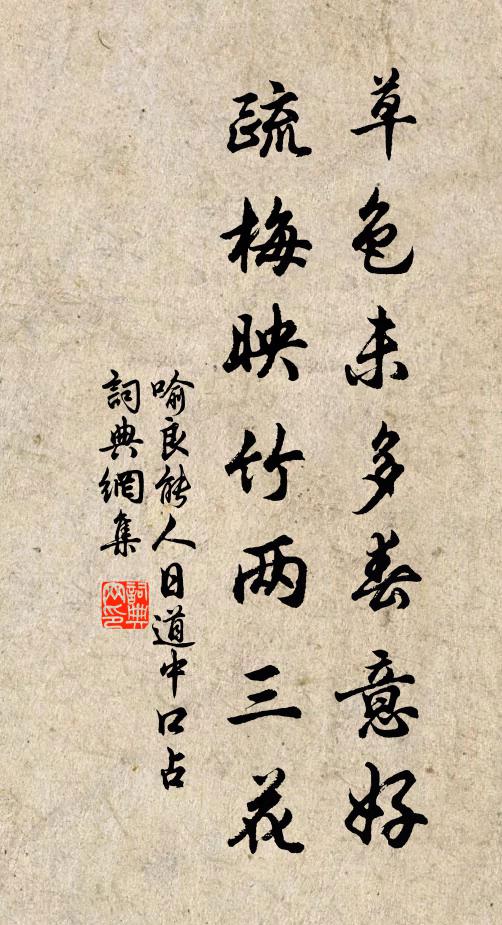 草色未多春意好
疏梅映竹两三花
喻良能人日道中口占
詞典網集
詞典网印